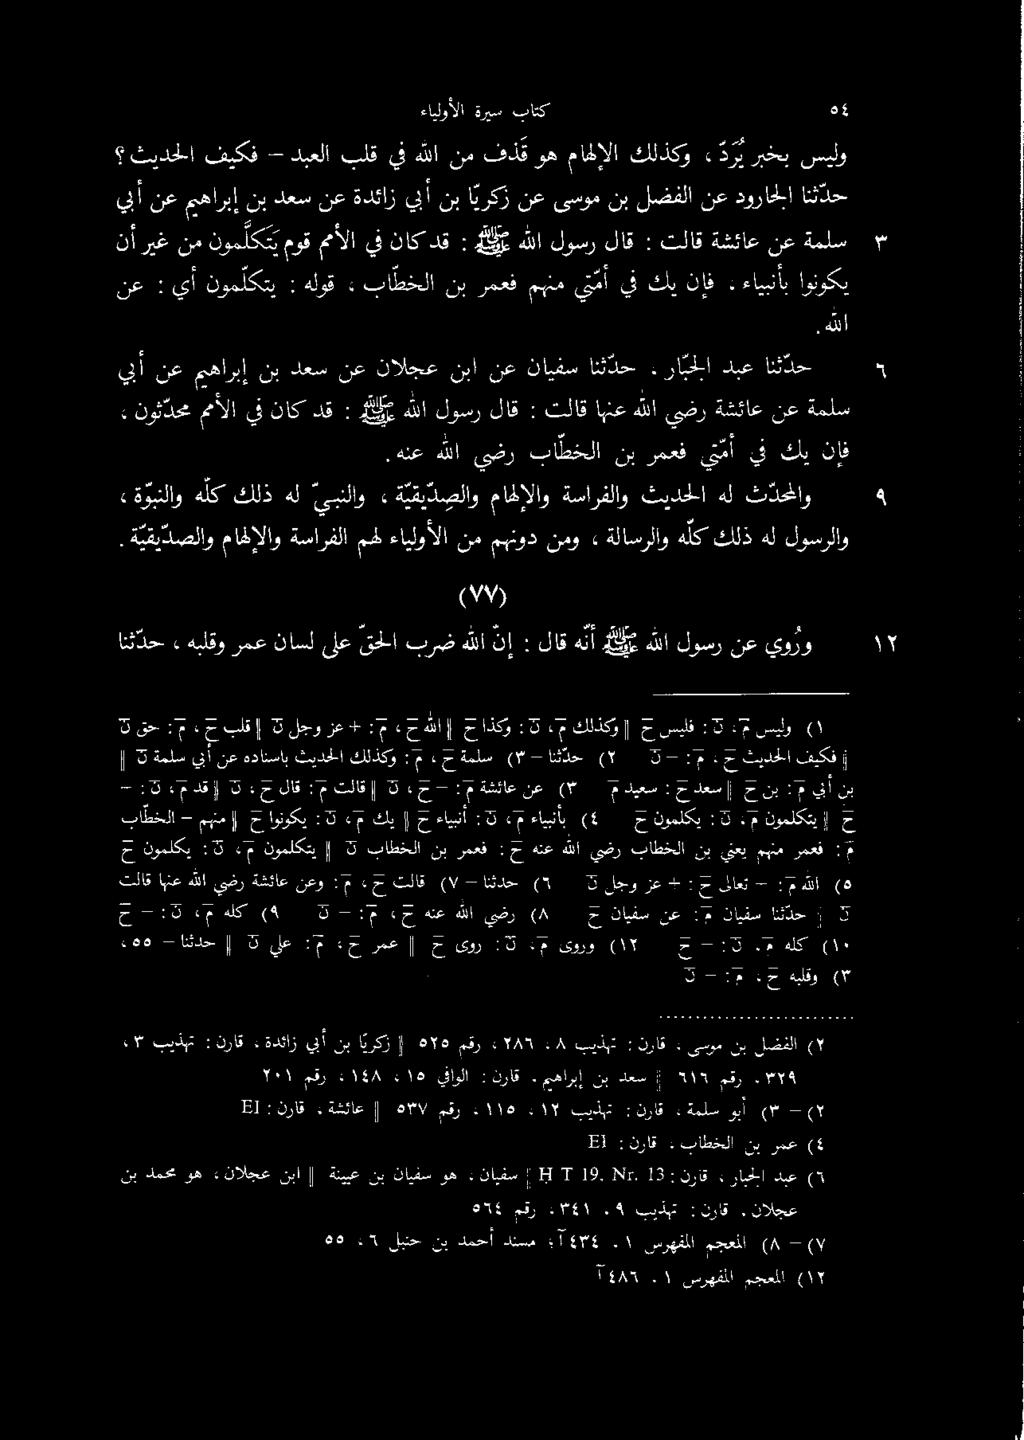 ٥٤ كتاب سيرة الأولياء
وليس بخبر يُرَدّ ، وكذلك الإلهام هو قذف من الله في قلب العبد – فكيف الحديث ؟
حدّثنا الجارود عن الفضل بن موسى عن زكريّا بن أبي زائدة عن سعد بن إبراهيم عن أبي
٣ سلمة عن عائشة قالت : قال رسول الله ﷺ : قد كان في الأمم قوم يَتَكلَّمون من غير أن
يكونوا بأنبياء ، فإن يك في أمّتي منهم فعمر بن الخطّاب ، قوله : يتكلّمون أي : عن
الله .
٦ حدّثنا عبد الجبّار ، حدّثنا سفيان عن ابن عجلان عن سعد بن إبراهيم عن أبي
سلمة عن عائشة رضي الله عنها قالت : قال رسول الله ﷺ : قد كان في الأمم محدّثون ،
فإن يك في أمّتي فعمر بن الخطّاب رضي الله عنه .
٩ والمحدّث له الحديث والفراسة والإلهام والصِدّيقيّة ، والنبيّ له ذلك كلّه والنبوّة ،
والرسول له ذلك كلّه والرسالة ، ومن دونهم من الأولياء لهم الفراسة والإلهام والصدّيقيّة .
(٧٧)
١٢ ورُوي عن رسول الله ﷺ أنّه قال : إنّ الله ضرب الحقّ على لسان عمر وقلبه ، حدّثنا
١) وليس م، ن : فليس ح || وكذلك م، ن : وكذا ح || الله ح، م : + عز وجل ن || قلب ح، م : حق ن
|| فكيف الحديث ح، م : – ن ٢) حدّثنا – ٣) سلمة ح، م : وكذلك الحديث باسناده عن أبي سلمة ن ||
بن أبي م : بن ح || سعد ح : سعيد م ٣) عن عائشة م : – ح، ن || قالت م : قال ح، ن || قد م، ن : –
ح || يتكلمون م، ن : يكلمون ح ٤) بأنبياء م، ن : أنبياء ح || يك م، ن : يكونوا ح || منهم – الخطّاب
م : فعمر منهم يعني بن الخطاب رضي الله عنه ح : فعمر بن الخطاب ن || يتكلمون م، ن : يكلمون ح
٥) الله م : – تعالى ح : + عز وجل ن ٦) حدثنا – ٧) قالت ح، م : وعن عائشة رضي الله عنها قالت
ن || حدّثنا سفيان م : عن سفيان ح ٨) رضي الله عنه ح، م : – ن ٩) كله م، ن : – ح
١٠) كله م، ن : – ح ١٢) وروى م، ن : روى ح || عمر ح، م : علي ن || حدثنا – ٥٥،
٣) وقلبه ح، م : – ن
٢) الفضل بن موسى ، قارن : تهذيب ٨ ، ٢٨٦ ، رقم ٥٢٥ || زكريّا بن أبي زائدة ، قارن : تهذيب ٣ ،
٣٢٩ ، رقم ٦١٦ || سعد بن إبراهيم ، قارن : الوافي ١٥ ، ١٤٨ ، رقم ٢٠١
٢) – ٣) أبو سلمة ، قارن : تهذيب ١٢ ، ١١٥ ، رقم ٥٣٧ || عائشة ، قارن : EI
٤) عمر بن الخطاب ، قارن : EI
٦) عبد الجبار ، قارن : H T 19, Nr. 13 || سفيان ، هو سفيان بن عيينة || ابن عجلان ، هو محمد بن
عجلان ، قارن : تهذيب ٩ ، ٣٤١ ، رقم ٥٦٤
٧) – ٨) المعجم المفهرس ١ ، ٤٣٤آ ؛ مسند أحمد بن حنبل ٦ ، ٥٥
١٢) المعجم المفهرس ١ ، ٤٨٦آ